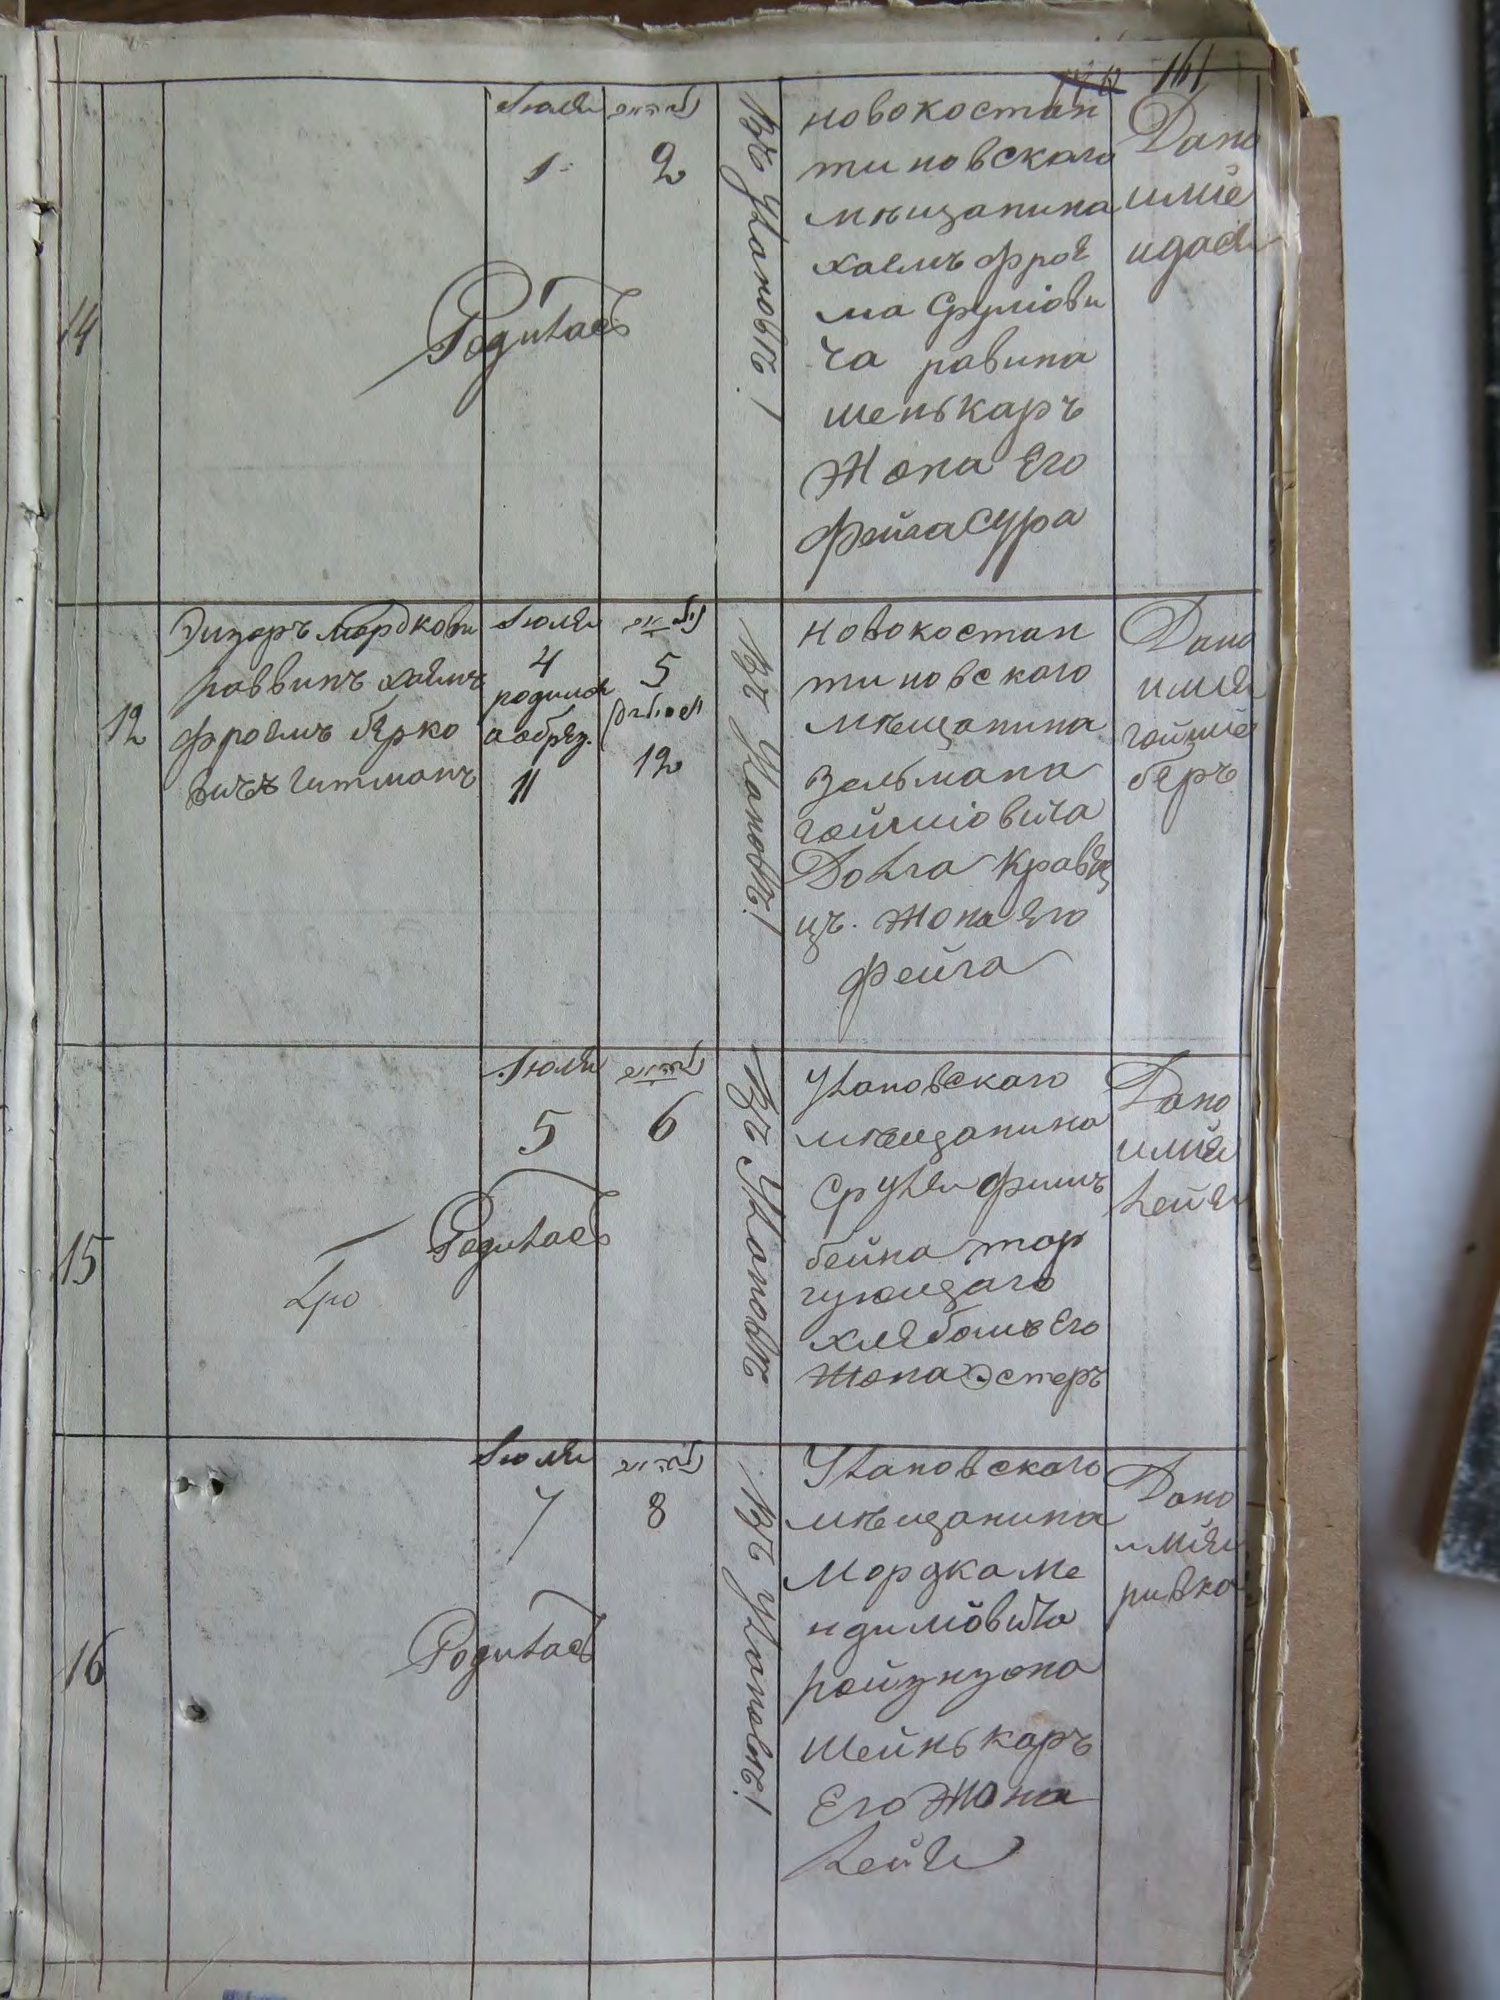 161
Іюля
1
2
14
Родилась
Въ Улановѣ!
новокостан
тиновскаго
мѣщанина
хаемъ фрое
ма Сруліови
ча равина
шенькаръ
Жона Его
Фейга сура
Дано
имїе
идася
12
Элизеръ Мордкови
раввинъ хаемъ
фроемъ берко
вичъ гитманъ
Іюля
4
родился
а обрез.
11
5
12
Въ Улановѣ!
новокостан
тиновскаго
мѣщанина
Зельмана
гойшіовича
Довга кравец
цъ. Жона Его
Фейга
Дано
имія
гойшіе
беръ
15
Іюля
5
6
Родилась
Въ Улановѣ
Улановскаго
мѣщанина
Срулея Фишъ
бейна тар
гующаго
хлебомъ Его
Жона Эстеръ
Дано
имія
Лейя
16
Іюля
7
8
Родилась
Въ Улановѣ!
Улановскаго
мѣщанина
Мордка Ме
ндимовича
ройзунзона
шейнькаръ
Его Жона
Лейя
Дано
имія
ривка